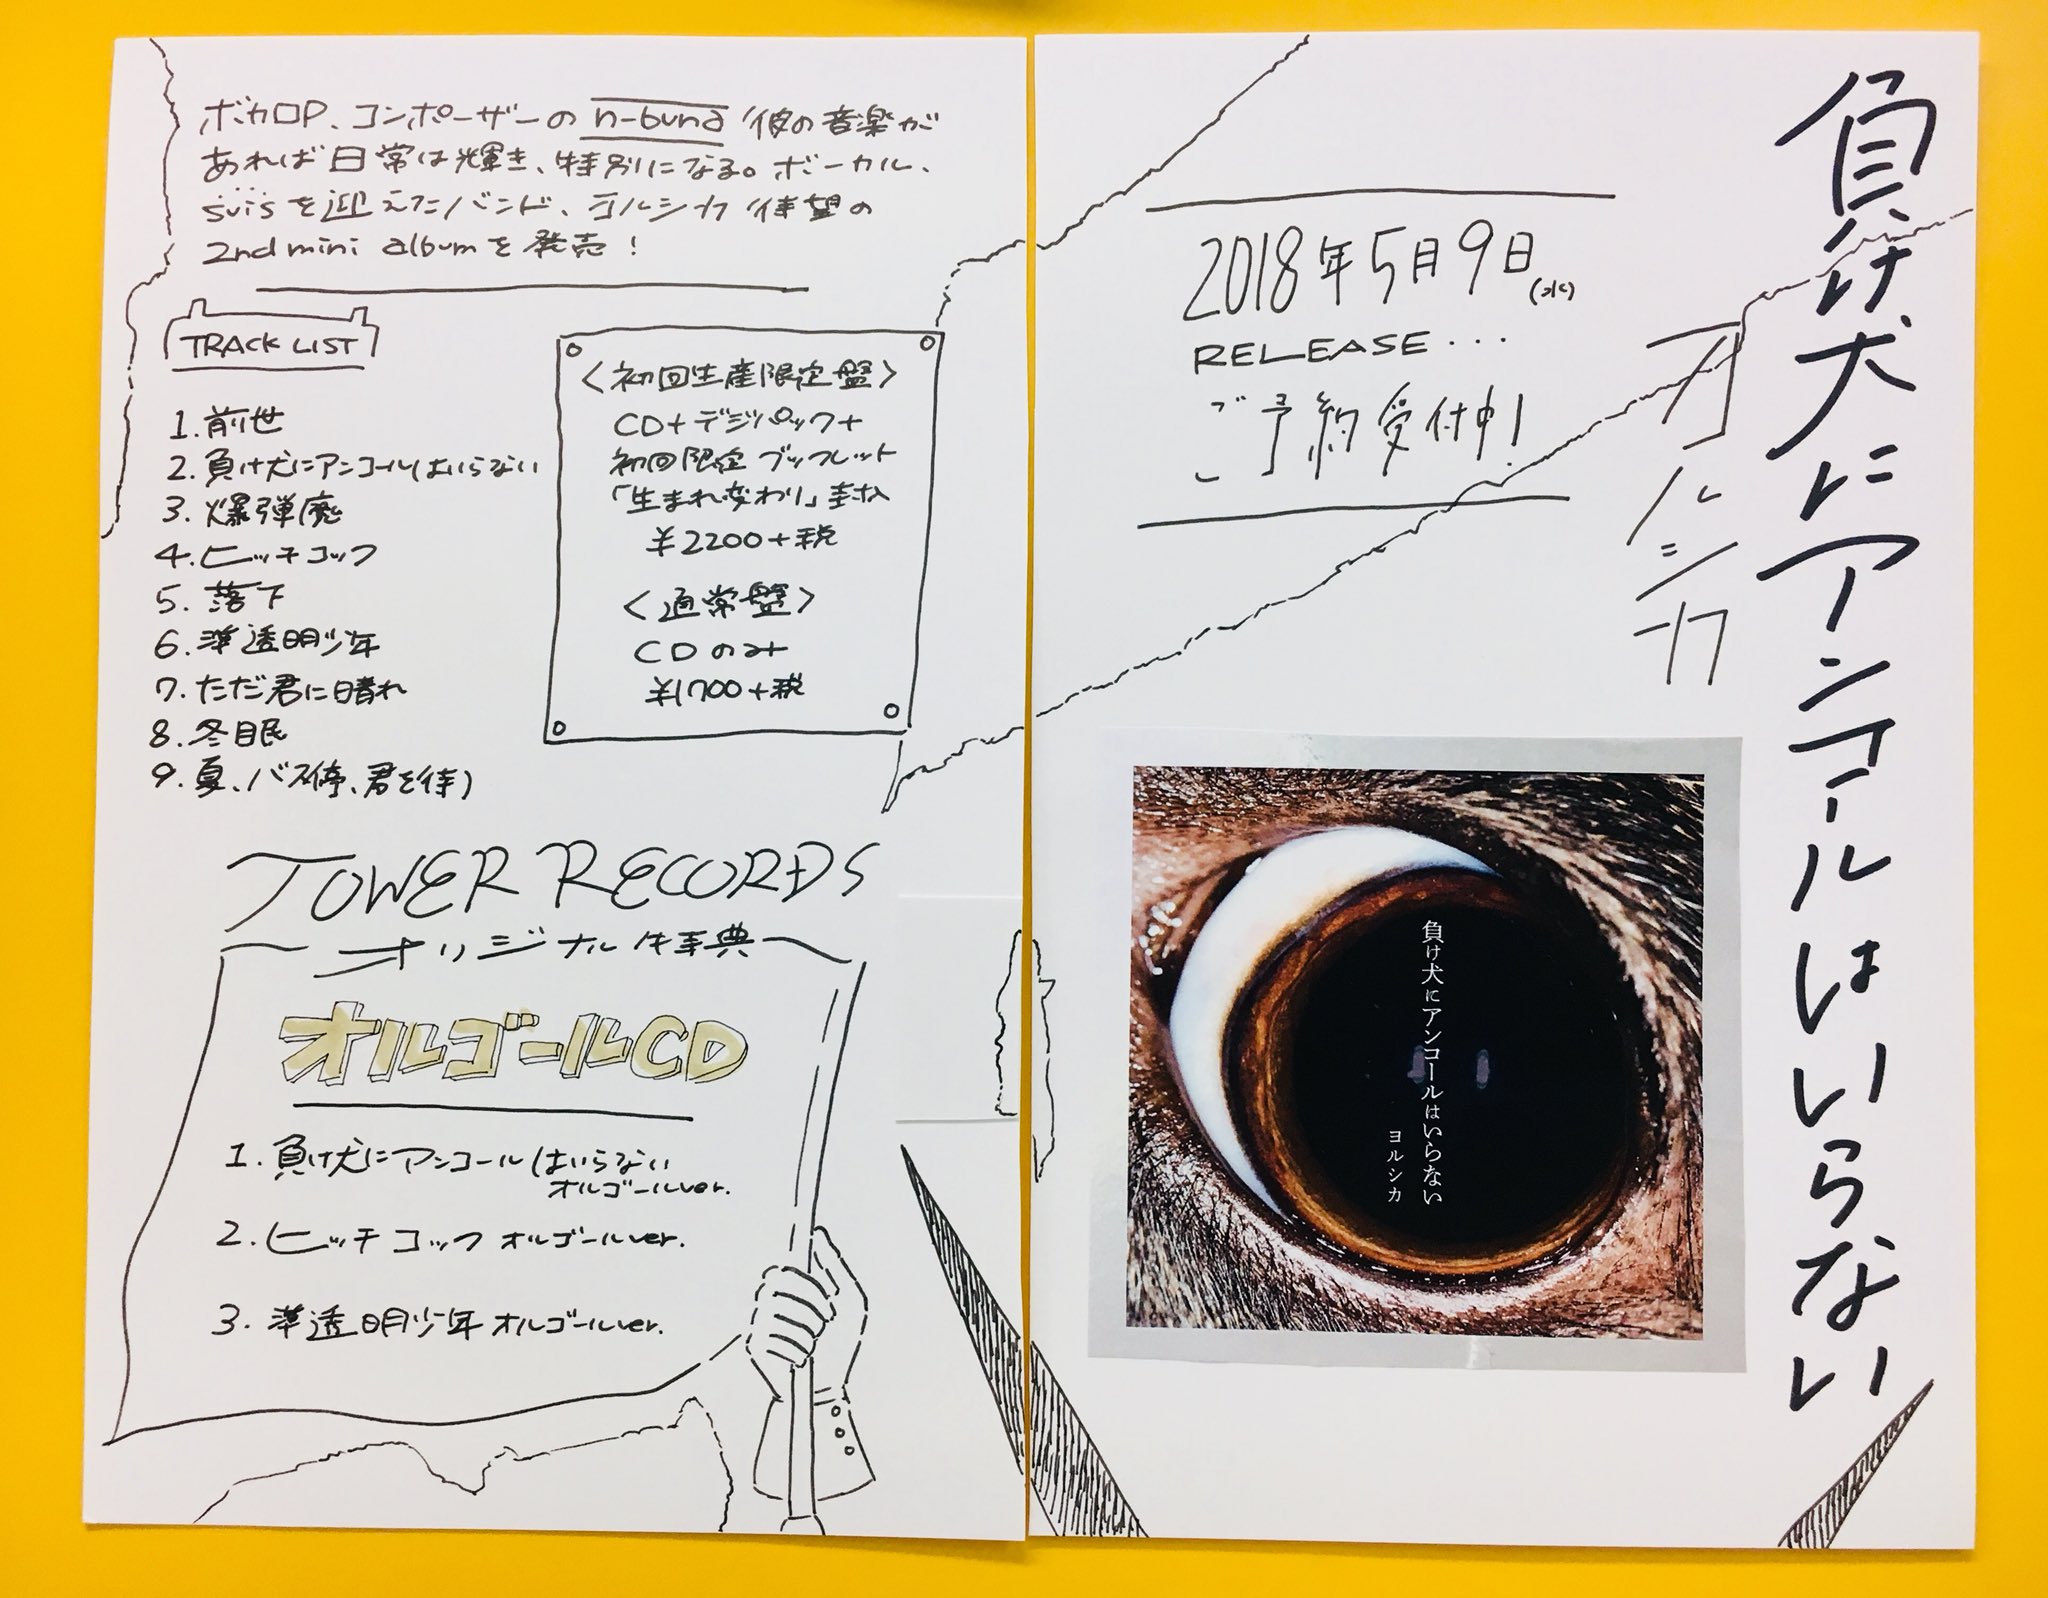 負け犬にアンコールはいらない
ヨルシカ
2018年5月9日(水)
RELEASE...
ご予約受付中!
負け犬にアンコールはいらない
ヨルシカ
ボカロP、コンポーザーのn-buna彼の音楽が
あれば日常は輝き、特別になる。ボーカル、
suisを迎えたバンド、ヨルシカ待望の
2nd mini albumを発売!
TRACK LIST
1.前世
2.負け犬にアンコールはいらない
3.爆弾魔
4.ヒッチコック
5.落下
6.準透明少年
7.ただ君に晴れ
8.冬眠
9.夏、バス停、君を待つ
〈初回生産限定盤〉
CD+デジパック+
初回限定ブックレット
「生まれ変わり」封入
¥2200+税
〈通常盤〉
CDのみ
¥1700+税
TOWER RECORDS
オリジナル特典
オルゴールCD
1.負け犬にアンコールはいらない
オルゴールver.
2.ヒッチコック オルゴールver.
3.準透明少年 オルゴールver.